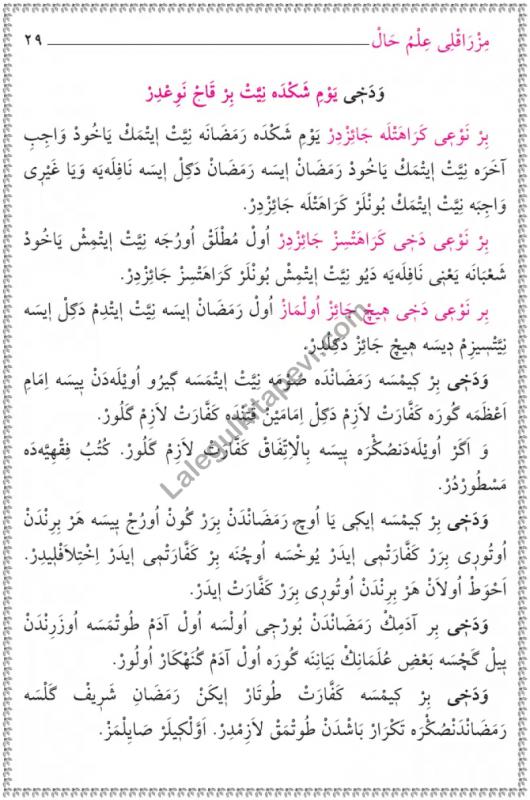 مِزْرَاقْلِى عِلْمُ حَالْ ٢٩
وَدَخِى يَوْمِ شَكْدَه نِيَّتْ بِرْ قَاجْ نَوِعْدِرْ
بِرْ نَوْعِى كَرَاهَتْلَه جَائِزْدِرْ يَوْمِ شَكْدَه رَمَضَانَه نِيَّتْ اِيتمَكْ يَاخُودْ وَاجِبِ
آخَرَه نِيَّتْ اِيتمَكْ يَاخُودْ رَمَضَانْ اِيسَه رَمَضَانْ دَگِلْ اِيسَه نَافِلَه‌يَه وَيَا غَيْرِى
وَاجِبَه نِيَّتْ اِيتمَكْ بُونْلَرْ كَرَاهَتْلَه جَائِزْدِرْ.
بِرْ نَوْعِى دَخِى كَرَاهَتْسِزْ جَائِزْدِرْ اُولْ مُطْلَقْ اُورُجَه نِيَّتْ اِيتْمِشْ يَاخُودْ
شَعْبَانَه يَعْنِى نَافِلَه‌يَه دَيُو نِيَّتْ اِيتْمِشْ بُونْلَرْ كَرَاهَتْسِزْ جَائِزْدِرْ.
بِر نَوْعِى دَخِى هِيچْ جَائِزْ اُولْمَازْ اُولْ رَمَضَانْ اِيسَه نِيَّتْ اِيتْدِمْ دَگِلْ اِيسَه
نِيَّتْسِيزِمْ دِيسَه هِيچْ جَائِزْ دَگِلْدِرْ.
وَدَخِى بِرْ كِيمْسَه رَمَضَانْدَه صَوْمَه نِيَّتْ اِيتْمَسَه گِيرُو اُويْلَه‌دَنْ يِيسَه اِمَامِ
اَعْظَمَه گُورَه كَفَّارَتْ لاَزِمْ دَگِلْ اِمَامَيْنْ قَتِنْدَه كَفَّارَتْ لاَزِمْ گَلُورْ.
وَ اَگَرْ اُويْلَه‌دَنْصُكْرَه يِيسَه بِالْاِتِّفَاقْ كَفَّارَتْ لاَزِمْ گَلُورْ. كُتُبِ فِقْهِيَّه‌دَه
مَسْطُورْدُرْ.
وَدَخِى بِرْ كِيمْسَه اِيكِى يَا اُوچْ رَمَضَانْدَنْ بِرَرْ گُونْ اُورُجْ يِيسَه هَرْ بِرِنْدَنْ
اُوتُورِى بِرَرْ كَفَّارَتْمِى اِيدَرْ يُوخْسَه اُوچُنَه بِرْ كَفَّارَتْمِى اِيدَرْ اِخْتِلاَفْلِيدِرْ.
اَحْوَطْ اُولاَنْ هَرْ بِرِنْدَنْ اُوتُورِى بِرَرْ كَفَّارَتْ اِيدَرْ.
وَدَخِى بِر آدَمِكْ رَمَضَانْدَنْ بُورْجِى اُولْسَه اُولْ آدَمْ طُوتْمَسَه اُوزَرِنْدَنْ
يِيلْ گَچْسَه بَعْضِ عُلَمَانِكْ بَيَانِنَه گُورَه اُولْ آدَمْ گُنَهْكَارْ اُولُورْ.
وَدَخِى بِرْ كِيمْسَه كَفَّارَتْ طُوتَارْ اِيكَنْ رَمَضَانِ شَرِيفْ گَلْسَه
رَمَضَانْدَنْصُكْرَه تَكْرَارْ بَاشْدَنْ طُوتْمَقْ لاَزِمْدِرْ. اَوَّلْكِيلَرْ صَايِلْمَزْ.
Lalegulkitapevi.com